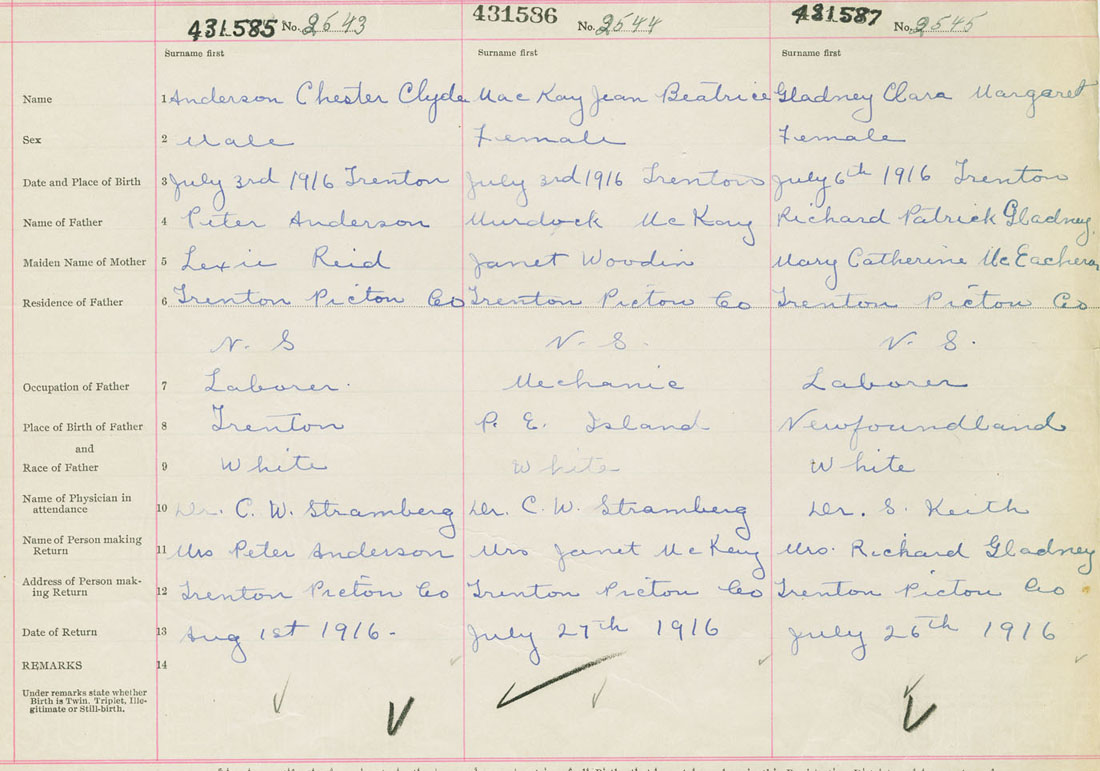 431585 No. 2543 431586 No. 2544 431587 No. 2545
Surname first Surname first Surname first
Name 1 Anderson Chester Clyde Mac Kay Jean Beatrice Gladney Clara Margaret
Sex 2 Male Female Female
Date and Place of Birth 3 July 3rd 1916 Trenton July 3rd 1916 Trenton July 6th 1916 Trenton
Name of Father 4 Peter Anderson Murdock McKay Richard Patrick Gladney
Maiden Name of Mother 5 Lexie Reid Janet Woodin Mary Catherine McEacheran
Residence of Father 6 Trenton Picton Co Trenton Picton Co Trenton Picton Co
N. S N. S. N. S.
Occupation of Father 7 Laborer. Mechanic Laborer
Place of Birth of Father 8 Trenton P. E. Island Newfoundland
and
Race of Father 9 White White White
Name of Physician in
attendance 10 Dr. C. W. Stramberg Dr. C. W. Stramberg Dr. S. Keith
Name of Person making
Return 11 Mrs Peter Anderson Mrs Janet McKay Mrs. Richard Gladney
Address of Person mak-
ing Return 12 Trenton Picton Co Trenton Picton Co Trenton Picton Co
Date of Return 13 Aug 1st 1916- July 27th 1916 July 26th 1916
REMARKS 14
Under remarks state whether
Birth is Twin, Triplet, Ille-
gitimate or Still-birth.